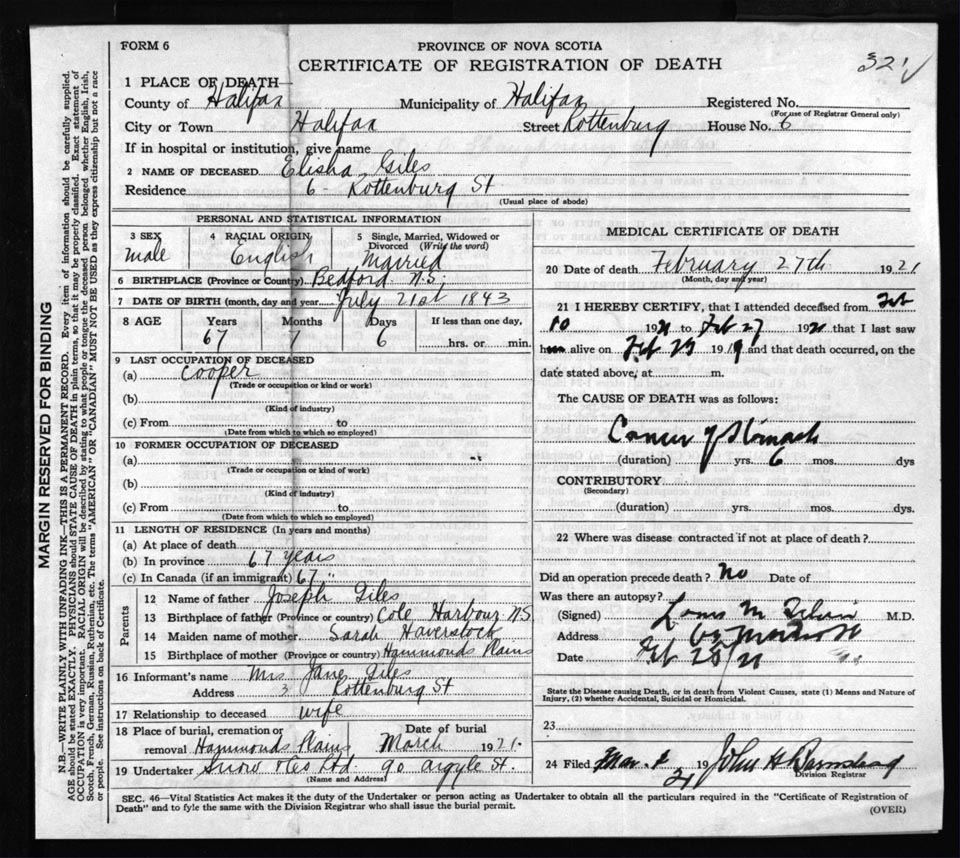 FORM 6
PROVINCE OF NOVA SCOTIA
CERTIFICATE OF REGISTRATION OF DEATH
321
1 PLACE OF DEATH
County of Halifax Municipality of Halifax Registered No.
(For use of Registrar General only)
City or Town Halifax Street Rottenburg House No. 6
If in hospital or institution, give name
2 NAME OF DECEASED Elisha Giles
Residence 6 - Rottenburg St
(Usual place of abode)
PERSONAL AND STATISTICAL INFORMATION
3 SEX 4 RACIAL ORIGIN 5 Single, Married, Widowed or
Divorced (Write the word)
male English Married
6 BIRTHPLACE (Province or Country) Bedford N.S.
7 DATE OF BIRTH (month, day and year) July 21st 1843
8 AGE Years Months Days If less than one day,
67 7 6 hrs. or min.
9 LAST OCCUPATION OF DECEASED
(a) Cooper
(Trade or occupation or kind or work)
(b)
(Kind of industry)
(c) From to
(Date from which to which so employed)
10 FORMER OCCUPATION OF DECEASED
(a)
(Trade or occupation or kind of work)
(b)
(Kind of industry)
(c) From to
(Date from which to which so employed)
11 LENGTH OF RESIDENCE (In years and months)
(a) At place of death
(b) In province 67 years
(c) In Canada (if an immigrant) 67 "
Parents
12 Name of father Joseph Giles
13 Birthplace of father (Province or country) Cole Harbour N.S
14 Maiden name of mother Sarah Haverstock
15 Birthplace of mother (Province or country) Hammonds Plains
16 Informant's name Mrs Jane Giles
Address 3 Rottenburg St
17 Relationship to deceased wife
18 Place of burial, cremation or Date of burial
removal Hammonds Plains March 1921.
19 Undertaker Snow & Co Ltd 90 Argyle St.
(Name and Address)
MEDICAL CERTIFICATE OF DEATH
20 Date of death February 27th 1921
(Month, day and year)
21 I HEREBY CERTIFY, that I attended deceased from Feb
10 1921 to Feb 27 1921 that I last saw
him alive on Feb 25 19 and that death occurred, on the
date stated above, at m.
The CAUSE OF DEATH was as follows:
Cancer of Stomach
(duration) yrs. 6 mos. dys
CONTRIBUTORY
(Secondary)
(duration) yrs. mos. dys.
22 Where was disease contracted if not at place of death?
Did an operation precede death? No Date of
Was there an autopsy?
(Signed) M.D.
Address
Date Feb 28/21
State the Disease causing Death, or in death from Violent Causes, state (1) Means and Nature of
Injury, (2) whether Accidental, Suicidal or Homicidal.
23
24 Filed Mar. 19 21 John H
Division Registrar
SEC. 46—Vital Statistics Act makes it the duty of the Undertaker or person acting as Undertaker to obtain all the particulars required in the "Certificate of Registration of
Death" and to fyle the same with the Division Registrar who shall issue the burial permit.
(OVER)
MARGIN RESERVED FOR BINDING
N.B.—WRITE PLAINLY WITH UNFADING INK—THIS IS A PERMANENT RECORD. Every item of information should be carefully supplied.
AGE should be stated EXACTLY. PHYSICIANS should STATE CAUSE OF DEATH in plain terms, so that it may be properly classified. Exact statement of
OCCUPATION is very important. RACIAL ORIGIN will be described by stating to what people or tongue the deceased person belonged whether English, Irish,
Scotch, French, German, Russian, Ruthenian, etc. The terms "AMERICAN" OR "CANADIAN" MUST NOT BE USED as they express citizenship but not a race
or people. See instructions on back of Certificate.